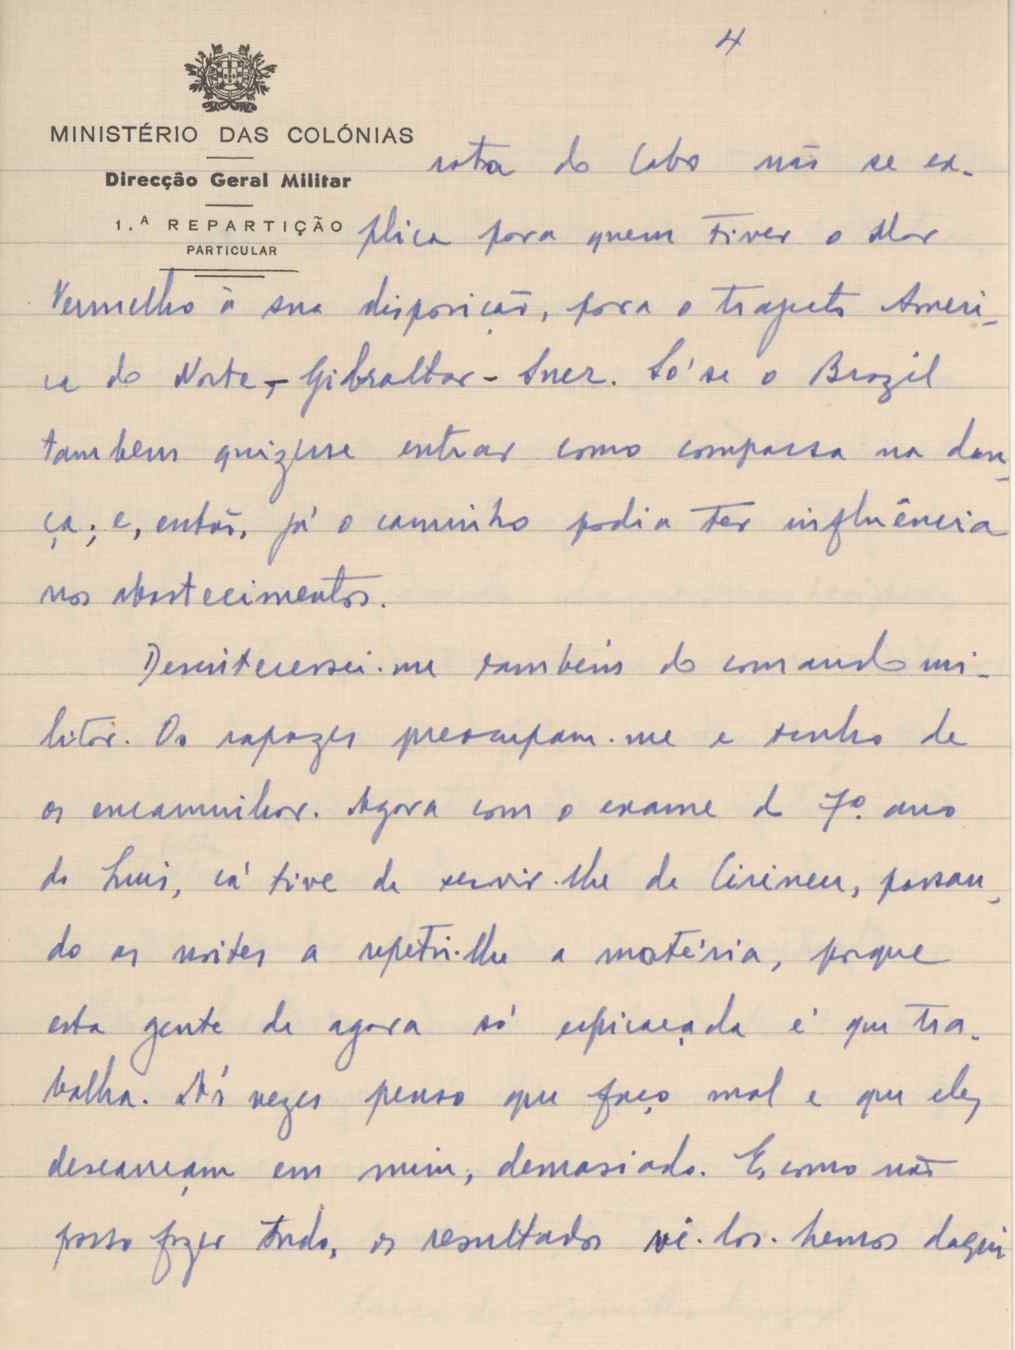 4
MINISTÉRIO DAS COLÓNIAS
Direcção Geral Militar
1.ª REPARTIÇÃO
PARTICULAR
rota do Cabo não se ex-
plica para quem tiver o Mar
Vermelho à sua disposição, para o trajecto Améri-
ca do Norte - Gibraltar - Suez. Só se o Brazil
tambem quizesse entrar como comparsa na dan-
ça; e, então, já o caminho podia ter influência
nos abastecimentos.
Desinteressei-me também do comando mi-
litar. Os rapazes preocupam-me e tenho de
os encaminhar. Agora com o exame do 7º. ano
do Luis, cá tive de servir-lhe de Cirineu, passan-
do as noites a repetir-lhe a matéria, porque
esta gente de agora só espicaçada é que tra-
balha. Às vezes penso que faço mal e que eles
descançam em mim, demasiado. E, como não
posso fazer tudo, os resultados vê-los-hemos daqui